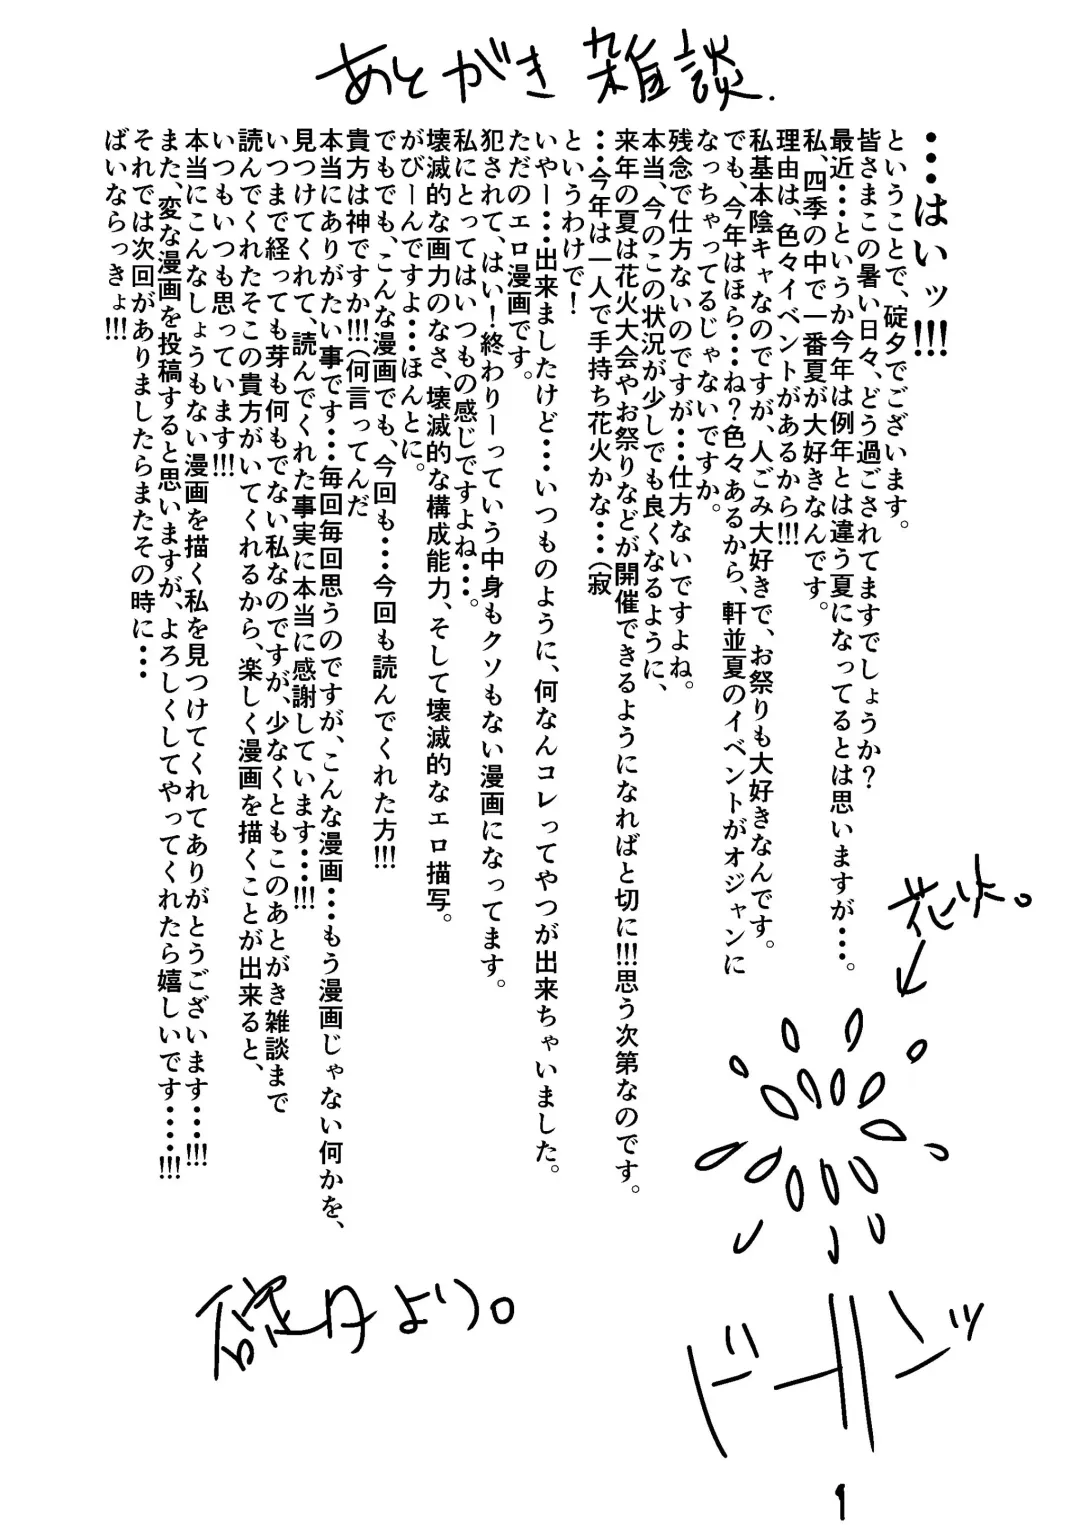 あとがき雑談.
・・・はいッ!!!
ということで、碇夕でございます。
皆さまこの暑い日々、どう過ごされてますでしょうか？
最近・・・というか今年は例年とは違う夏になってるとは思いますが・・・。
私、四季の中で一番夏が大好きなんです。
理由は、色々イベントがあるから!!!
私基本陰キャなのですが、人ごみ大好きで、お祭りも大好きなんです。
でも、今年はほら・・・ね？色々あるから、軒並夏のイベントがオジャンに
なっちゃってるじゃないですか。
残念で仕方ないのですが・・・仕方ないですよね。
本当、今のこの状況が少しでも良くなるように、
来年の夏は花火大会やお祭りなどが開催できるようになればと切に!!!思う次第なのです。
・・・今年は一人で手持ち花火かな・・・（寂
というわけで！
いやー・・・出来ましたけど・・・いつものように、何なんコレってやつが出来ちゃいました。
ただのエロ漫画です。
犯されて、はい！終わりーっていう中身もクソもない漫画になってます。
私にとってはいつもの感じですよね・・・。
壊滅的な画力のなさ、壊滅的な構成能力、そして壊滅的なエロ描写。
がびーんですよ・・・ほんとに。
でもでも、こんな漫画でも、今回も・・・今回も読んでくれた方!!!
貴方は神ですか!!!（何言ってんだ
本当にありがたい事です・・・毎回毎回思うのですが、こんな漫画・・・もう漫画じゃない何かを、
見つけてくれて、読んでくれた事実に本当に感謝しています・・・!!!
いつまで経っても芽も何もでない私なのですが、少なくともこのあとがき雑談まで
読んでくれたそこの貴方がいてくれるから、楽しく漫画を描くことが出来ると、
いつもいつも思っています!!!
本当にこんなしょうもない漫画を描く私を見つけてくれてありがとうございます・・・!!!
また、変な漫画を投稿すると思いますが、よろしくしてやってくれたら嬉しいです・・・・!!!
それでは次回がありましたらまたその時に・・・
ばいならっきょ!!!
花火。
ドーーンッ
碇夕より。